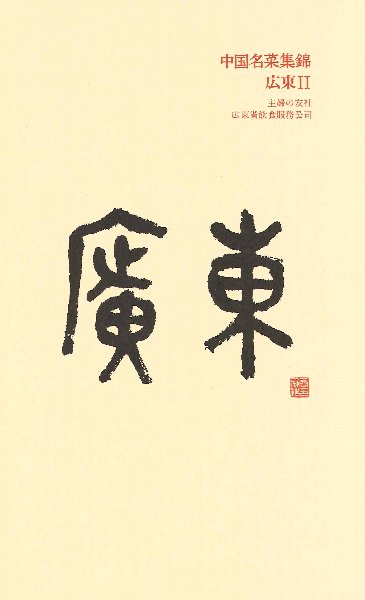 中国名菜集錦
広東II
主婦の友社
広東省飲食服務公司
廣東